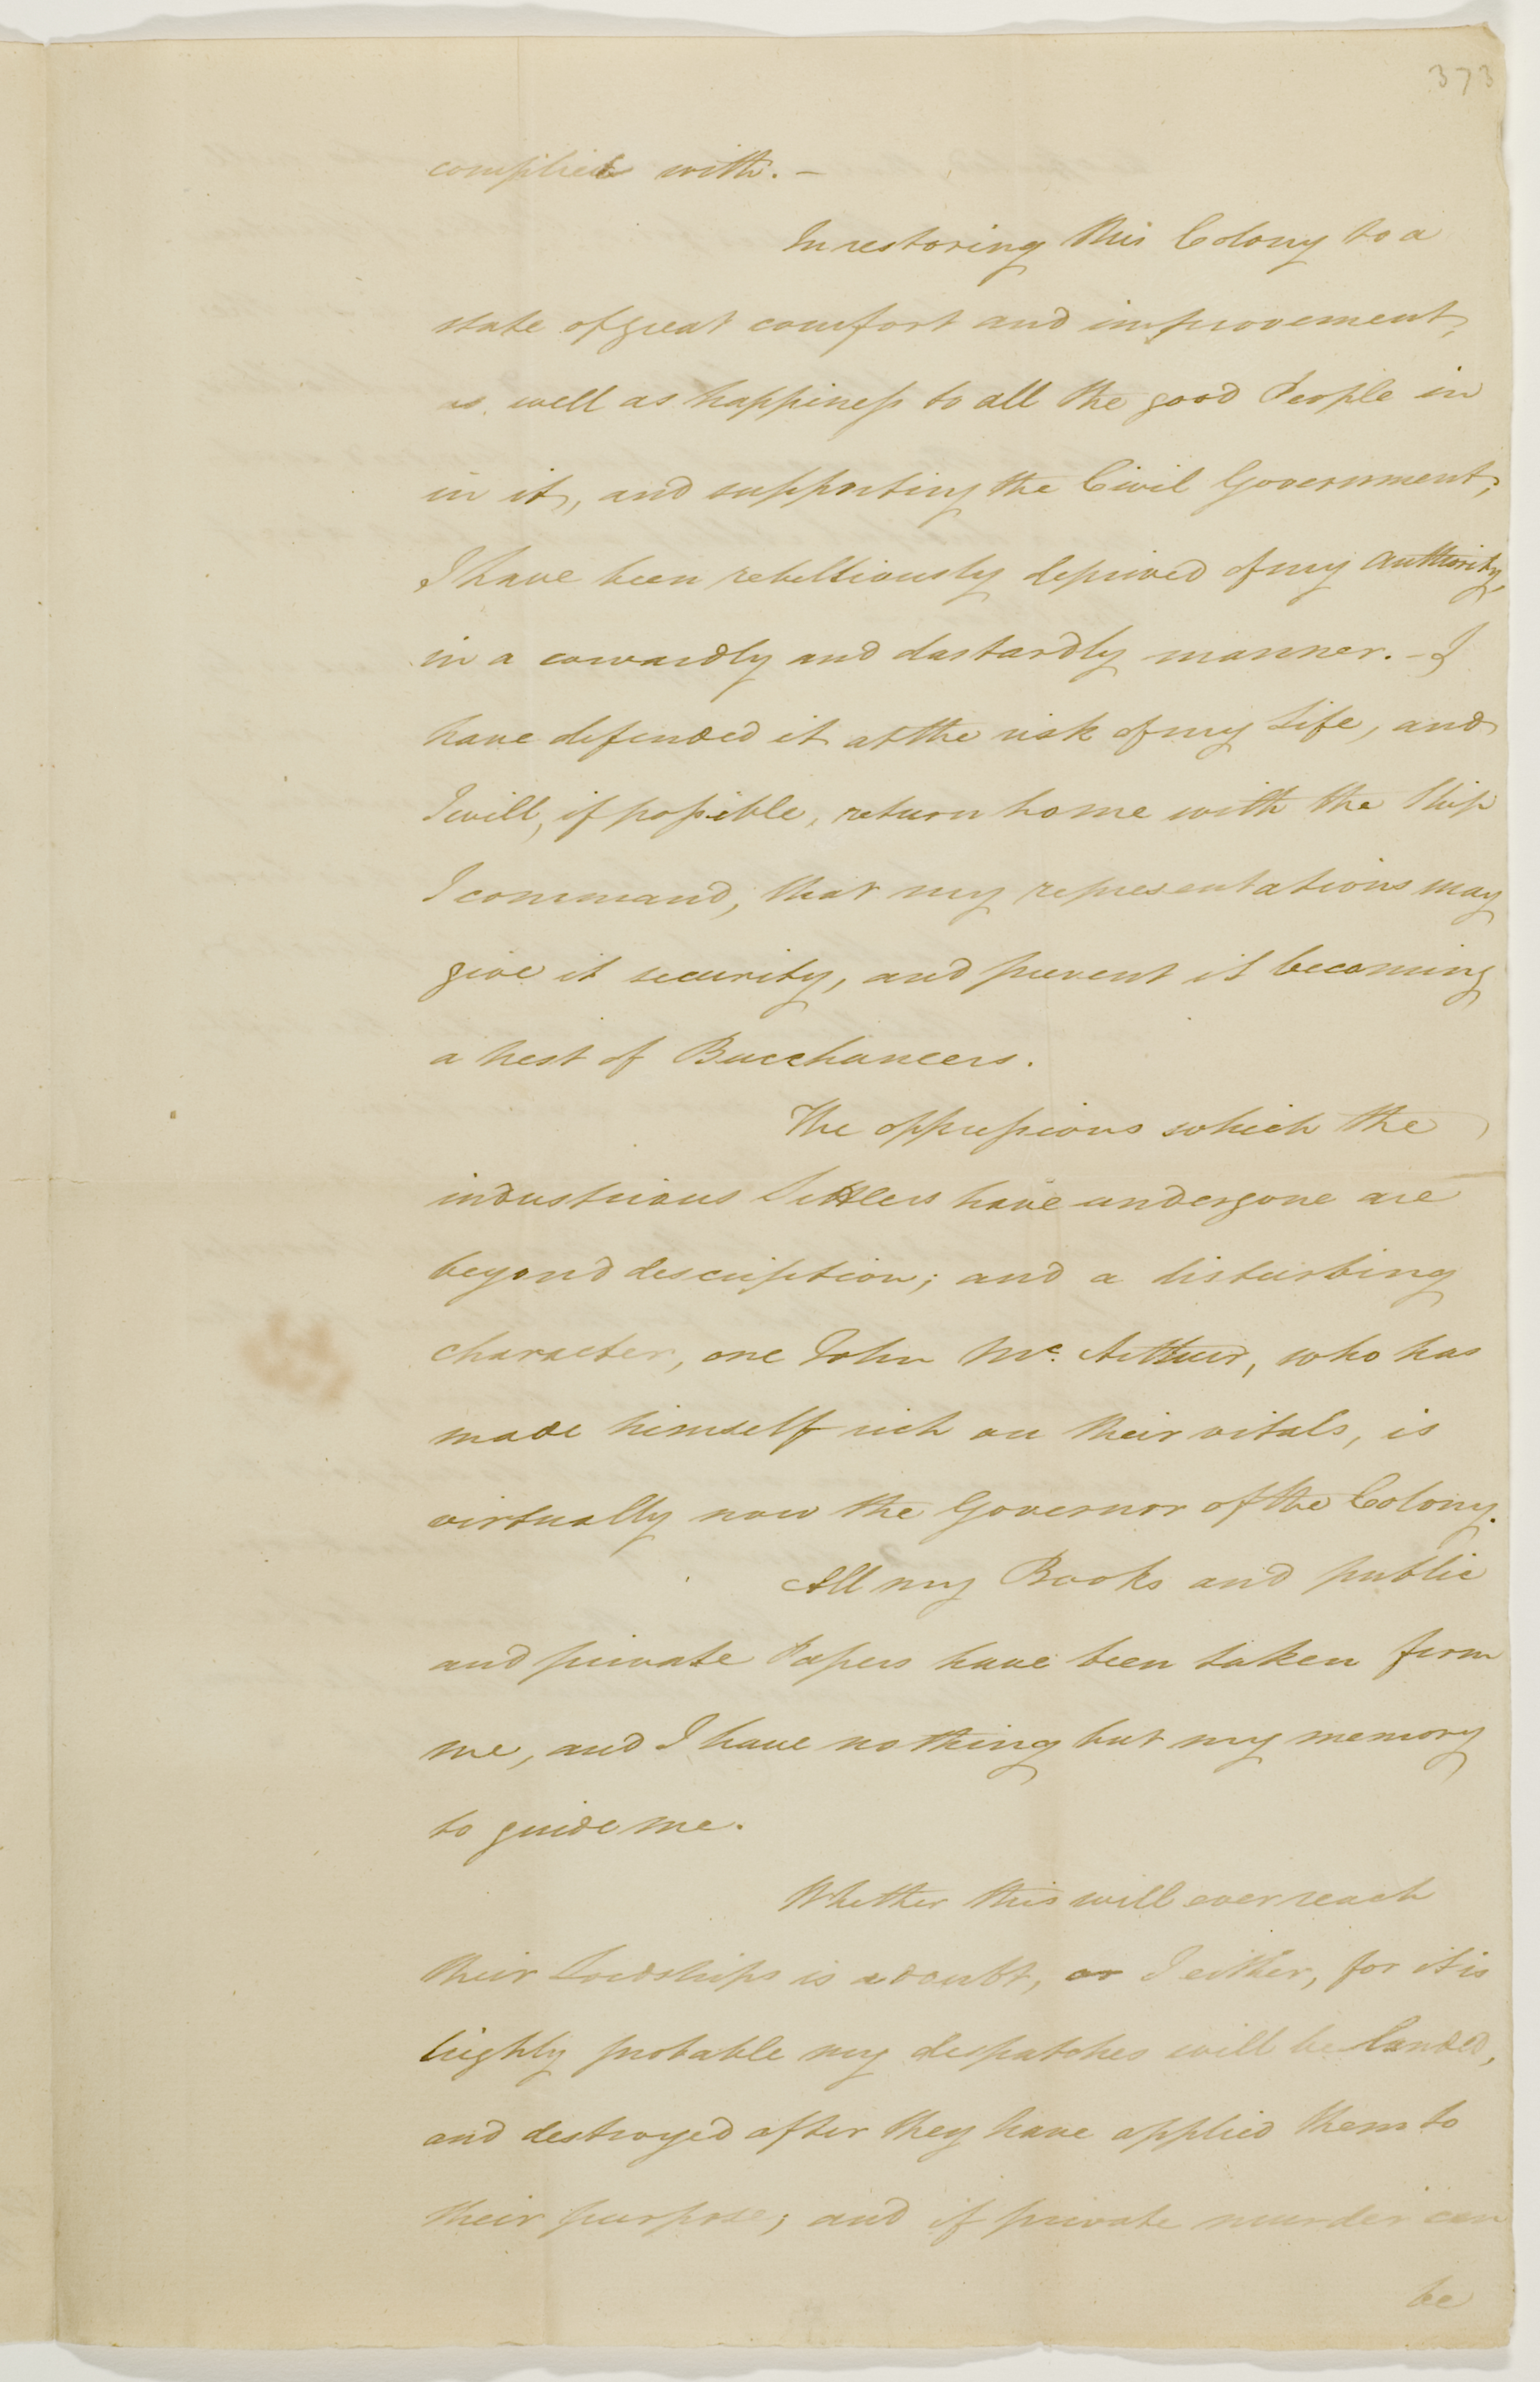 373
complied with. –
In restoring this Colony to a
state of great comfort and improvement,
as well as happiness to all the good People in
in it, and supporting the Civil Government;
I have been rebelliously deprived of my authority,
in a cowardly and dastardly manner. – I
have defended it at the risk of my Life, and
I will, if possible, return home with the Ship
I command, that my representations may
give it security, and prevent it becoming
a nest of Bucchaneers.
The oppressions which the
industrious Settlers have undergone are
beyond description; and a disturbing
character, one John Mc. Arthur, who has
made himself rich on their vitals, is
virtually now the Governor of the Colony.
All my Books and public
and private Papers have been taken from
me, and I have nothing but my memory
to guide me.
Whether this will ever reach
their Lordships is a doubt, or I either, for it is
highly probable my despatches will be landed,
and destroyed after they have applied them to
their purpose; and if private murder can
be